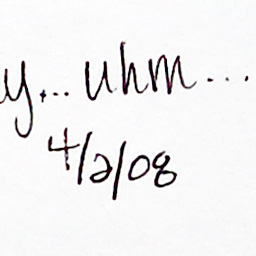 y... uhm...
4/2/08